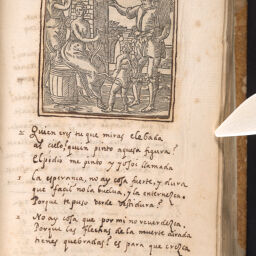 Quien eres tu que miras elebada
al cielo? quien pinto aquesa figura?
Elpidio me pinto y yo soi llamada
La esperança, no ay cosa fuerte, y dura
que facil no la buelua, y la enternesca.
Porque te puso verde vestidura?
No ay cosa que por mi no reuerdesca.
Porque las flechas de la muerte airada
tienes quebradas? es para que cresca